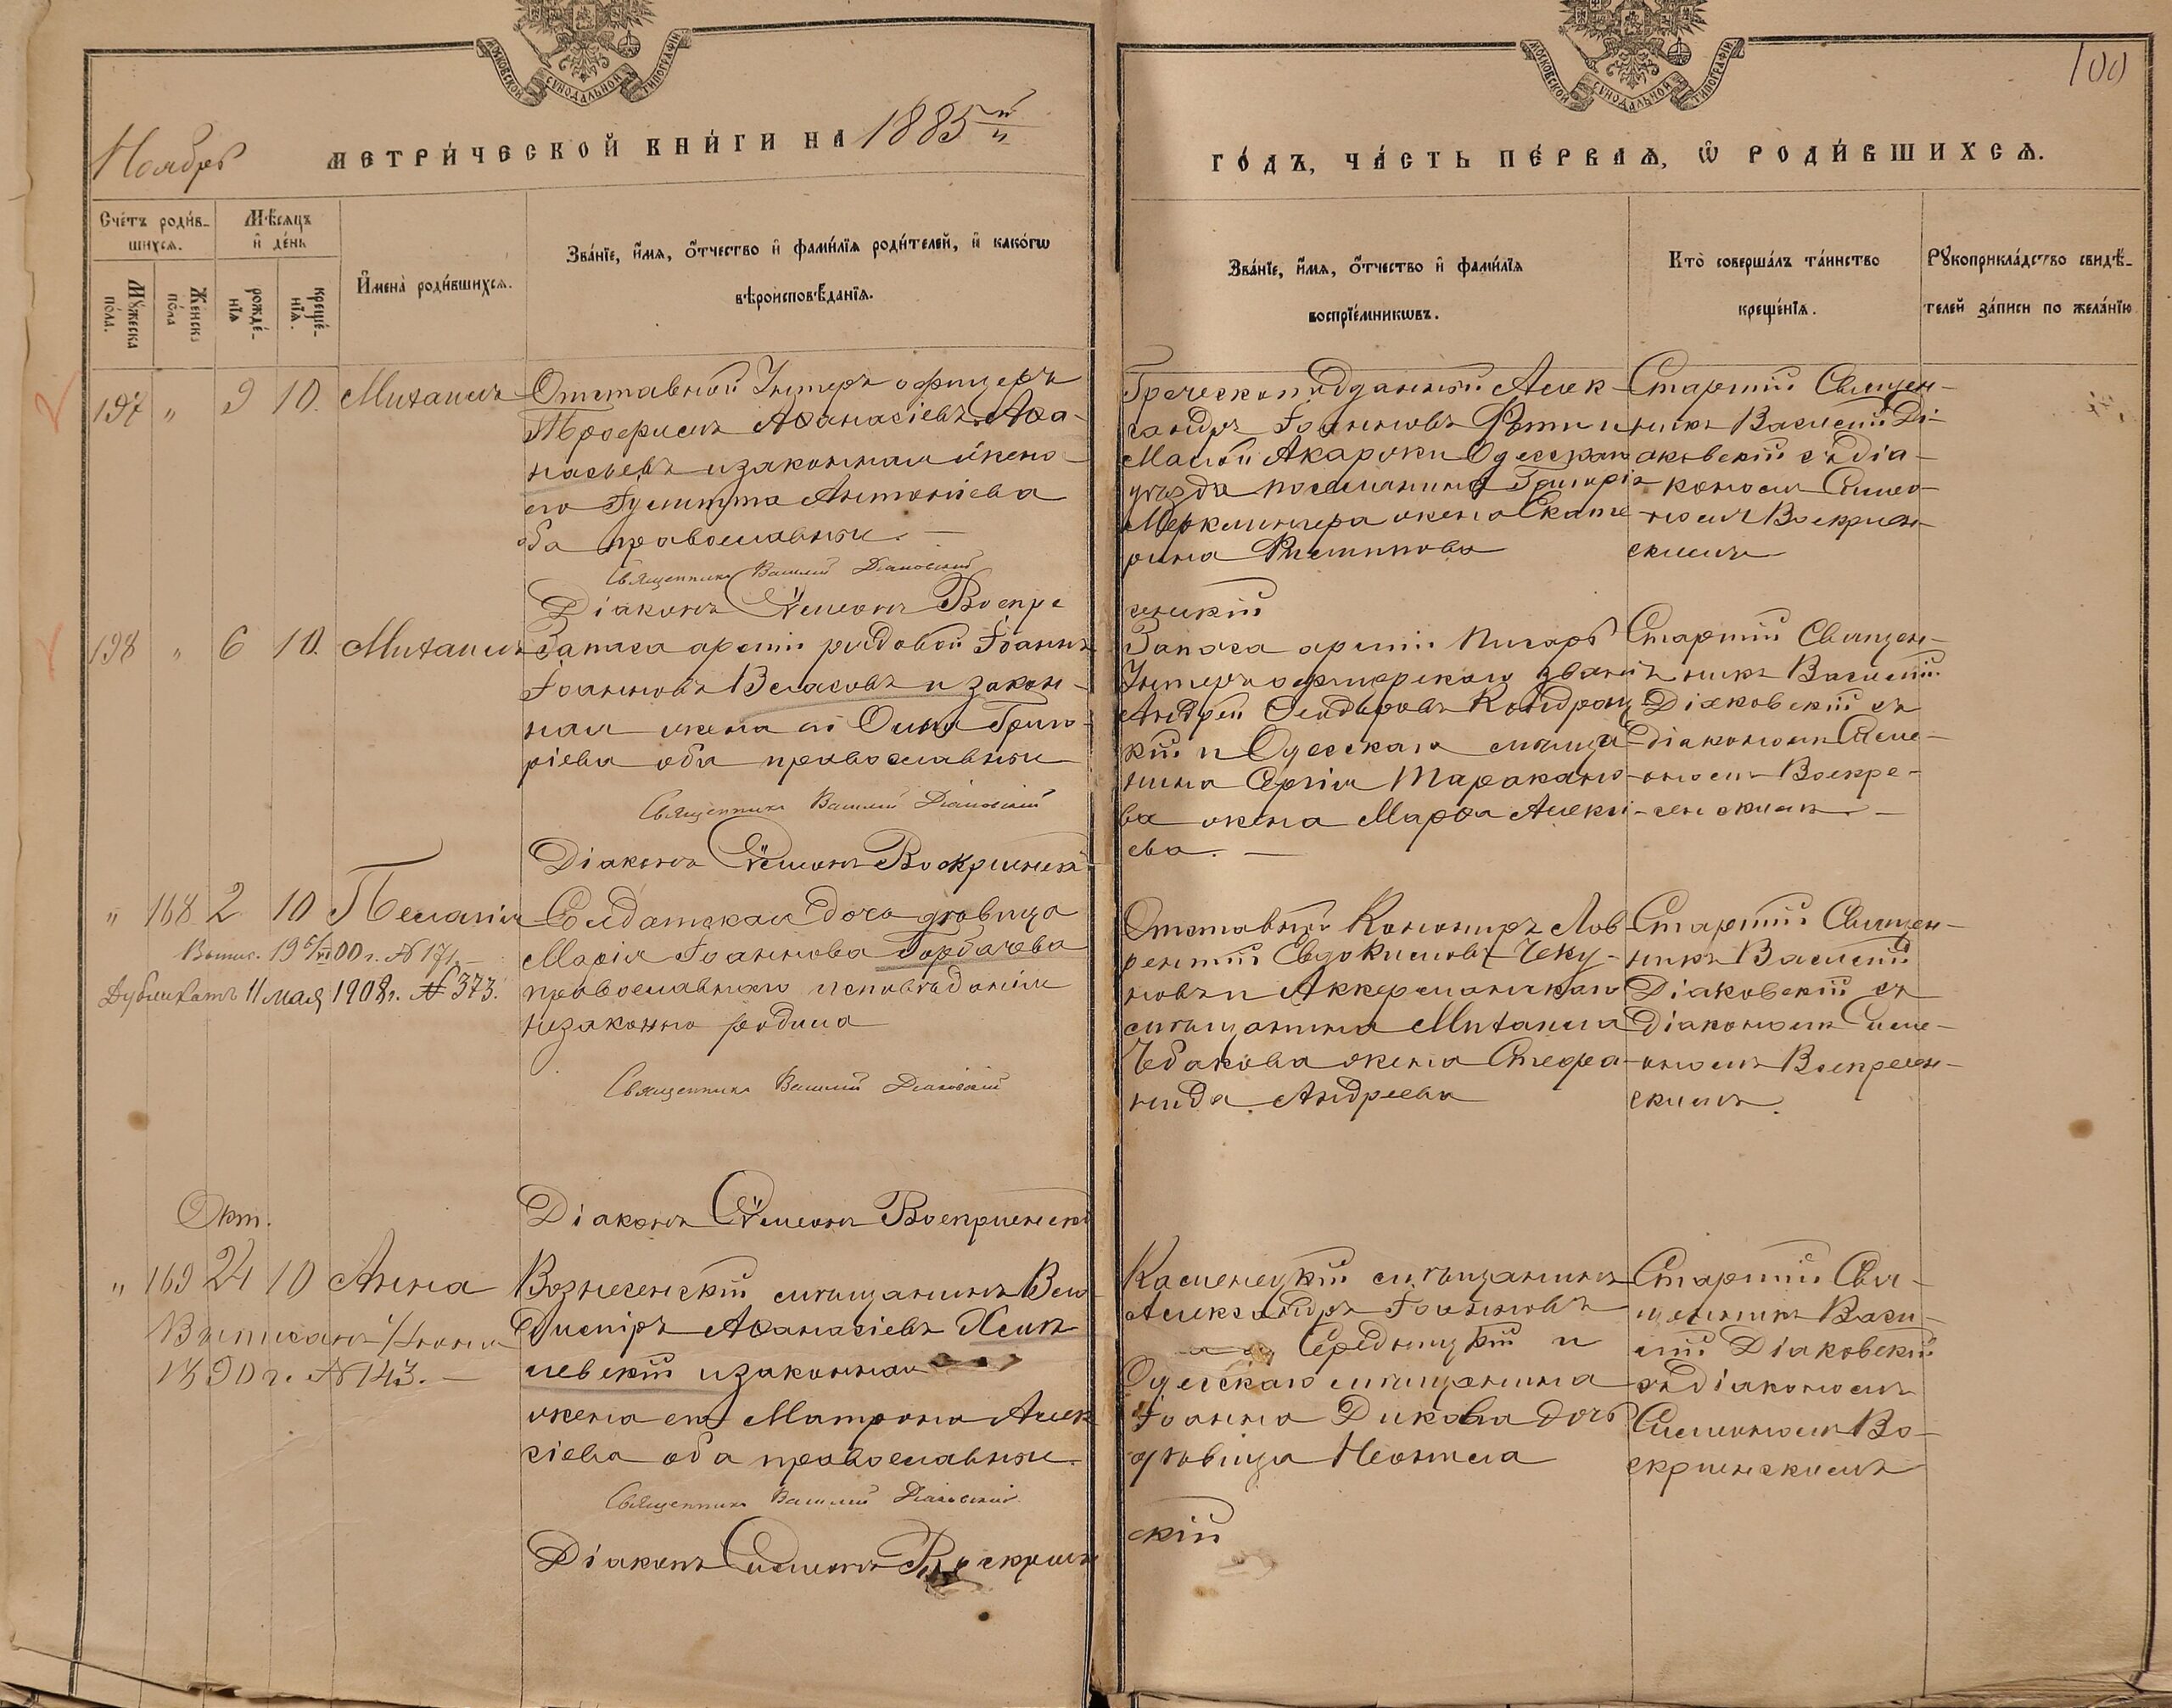 МОСКОВСКОЙ СѴНОДАЛЬНОЙ ТИПОГРАФІИ
МОСКОВСКОЙ СѴНОДАЛЬНОЙ ТИПОГРАФІИ
100
Ноябрь
МЕТРИ́ЧЕСКОЙ КНИ́ГИ НА 1885й
ГО́ДЪ, ЧА́СТЬ ПЕ́РВАѦ, Ѡ҆ РОДИ́ВШИХСѦ.
Сче́тъ роди́в-
шихсѧ.
Мѣ́сѧцъ
и҆ де́нь
Мꙋ́жеска
по́ла.
Же́нска
по́ла
рожде́-
нїѧ
креще́-
нїѧ.
И҆мена̀ роди́вшихсѧ.
Зва́нїе, и҆́мѧ, ѻ҆́тчество и҆ фами́лїѧ роди́телей, и҆ како́гѡ
вѣроисповѣ́данїѧ.
Зва́нїе, и҆́мѧ, ѻ҆́тчество и҆ фами́лїѧ
воспрїе́мникѡвъ.
Кто̀ соверша́лъ та́инство
креще́нїѧ.
Рꙋкоприкла́дство свидѣ́-
телей за́писи по жела́нїю
197 " 9 10. Михаилъ
Отставной Унтеръ офицеръ
Трофимъ Аѳанасіевъ Аѳа-
насьевъ и законная жена
его Іулитта Антоніева
оба православные. —
Священникъ Василій Діаковскій
Діаконъ Сѵмеонъ Воскре
Греческоподданный Алек-
сандръ Іоанновъ
Малый Одесскаго
уезда поселянина Григорія
жена Екате-
рина Филиппова
сенскій
Старшій Священ-
никъ Василій Ді-
аковскій съ діа-
кономъ Симео-
номъ Воскресен-
скимъ
198 " 6 10. Михаилъ
Запаса арміи рядовой Іоаннъ
Іоанновъ Власовъ и закон-
ная жена его Григо-
ріева оба православные
Священникъ Василій Діаковскій
Діаконъ Сѵмеонъ Воскресенскій
Запаса арміи писарь
Унтеръ офицерскаго званія
Андрей Кондрац-
кій и Одесскаго мѣща-
нина Сергія Таракано-
ва жена Марѳа Алексі-
ева. —
Старшій Священ-
никъ Василій
Діаковскій съ
діакономъ Симе-
ономъ Воскре-
сенскимъ. —
" 168 2 10 Пелагія
Выпис. 19 00 г. № 171. —
Дубликатъ 11 мая 1908 г. № 373.
Солдатская дочь дѣвица
Марія Іоаннова Горбачева
православнаго исповѣданія
незаконно родила
Священникъ Василій Діаковскій
Діаконъ Сѵмеонъ Воскресенскій
Отставный Канониръ Лав-
рентій Евдокимовъ Чеку-
новъ и Аккерманскаго
мѣщанина Михаила
Чебакова жена Стефа-
нида Андреева
Старшій Священ-
никъ Василій
Діаковскій съ
діакономъ Симе-
ономъ Воскресен-
скимъ.
Окт.
" 169 24 10 Анна
Выписанъ 1/Іюня
1890 г. № 143. —
Вознесенскій мѣщанинъ Вла-
диміръ Аѳанасіевъ Хмѣ-
левскій и законная
жена его Матрона Алек-
сіева оба православные.
Священникъ Василій Діаковскій
Діаконъ Симеонъ Воскресен
Каменецкій мѣщанинъ
Александръ Іоанновъ
Середницкій и
Одесскаго мѣщанина
Іоанна Дикова дочь
дѣвица Неонила
скій
Старшій Свя-
щенникъ Васи-
лій Діаковскій
съ діакономъ
Симеономъ Во-
скресенскимъ